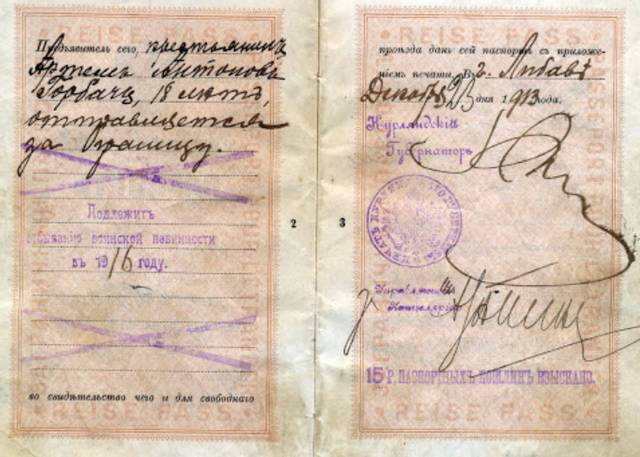 REISE PASS
Предъявитель сего, крестьянинъ
Артемъ Антоновъ
Горбачъ, 18 лѣтъ,
отправляется
за границу.
Подлежитъ
воинской повинности
въ 1916 году.
во свидѣтельство чего и для свободнаго
2
REISE PASS
проѣзда данъ сей паспортъ съ приложе-
ніемъ печати. В г. Либавѣ
Декабр 23 дня 1913 года.
Курляндскій
Губернаторъ
3
Управляющій
Канцеляріею
15 Р. ПАСПОРТНЫХЪ ПОШЛИНЪ ВЗЫСКАНЫ.
REISE PASS